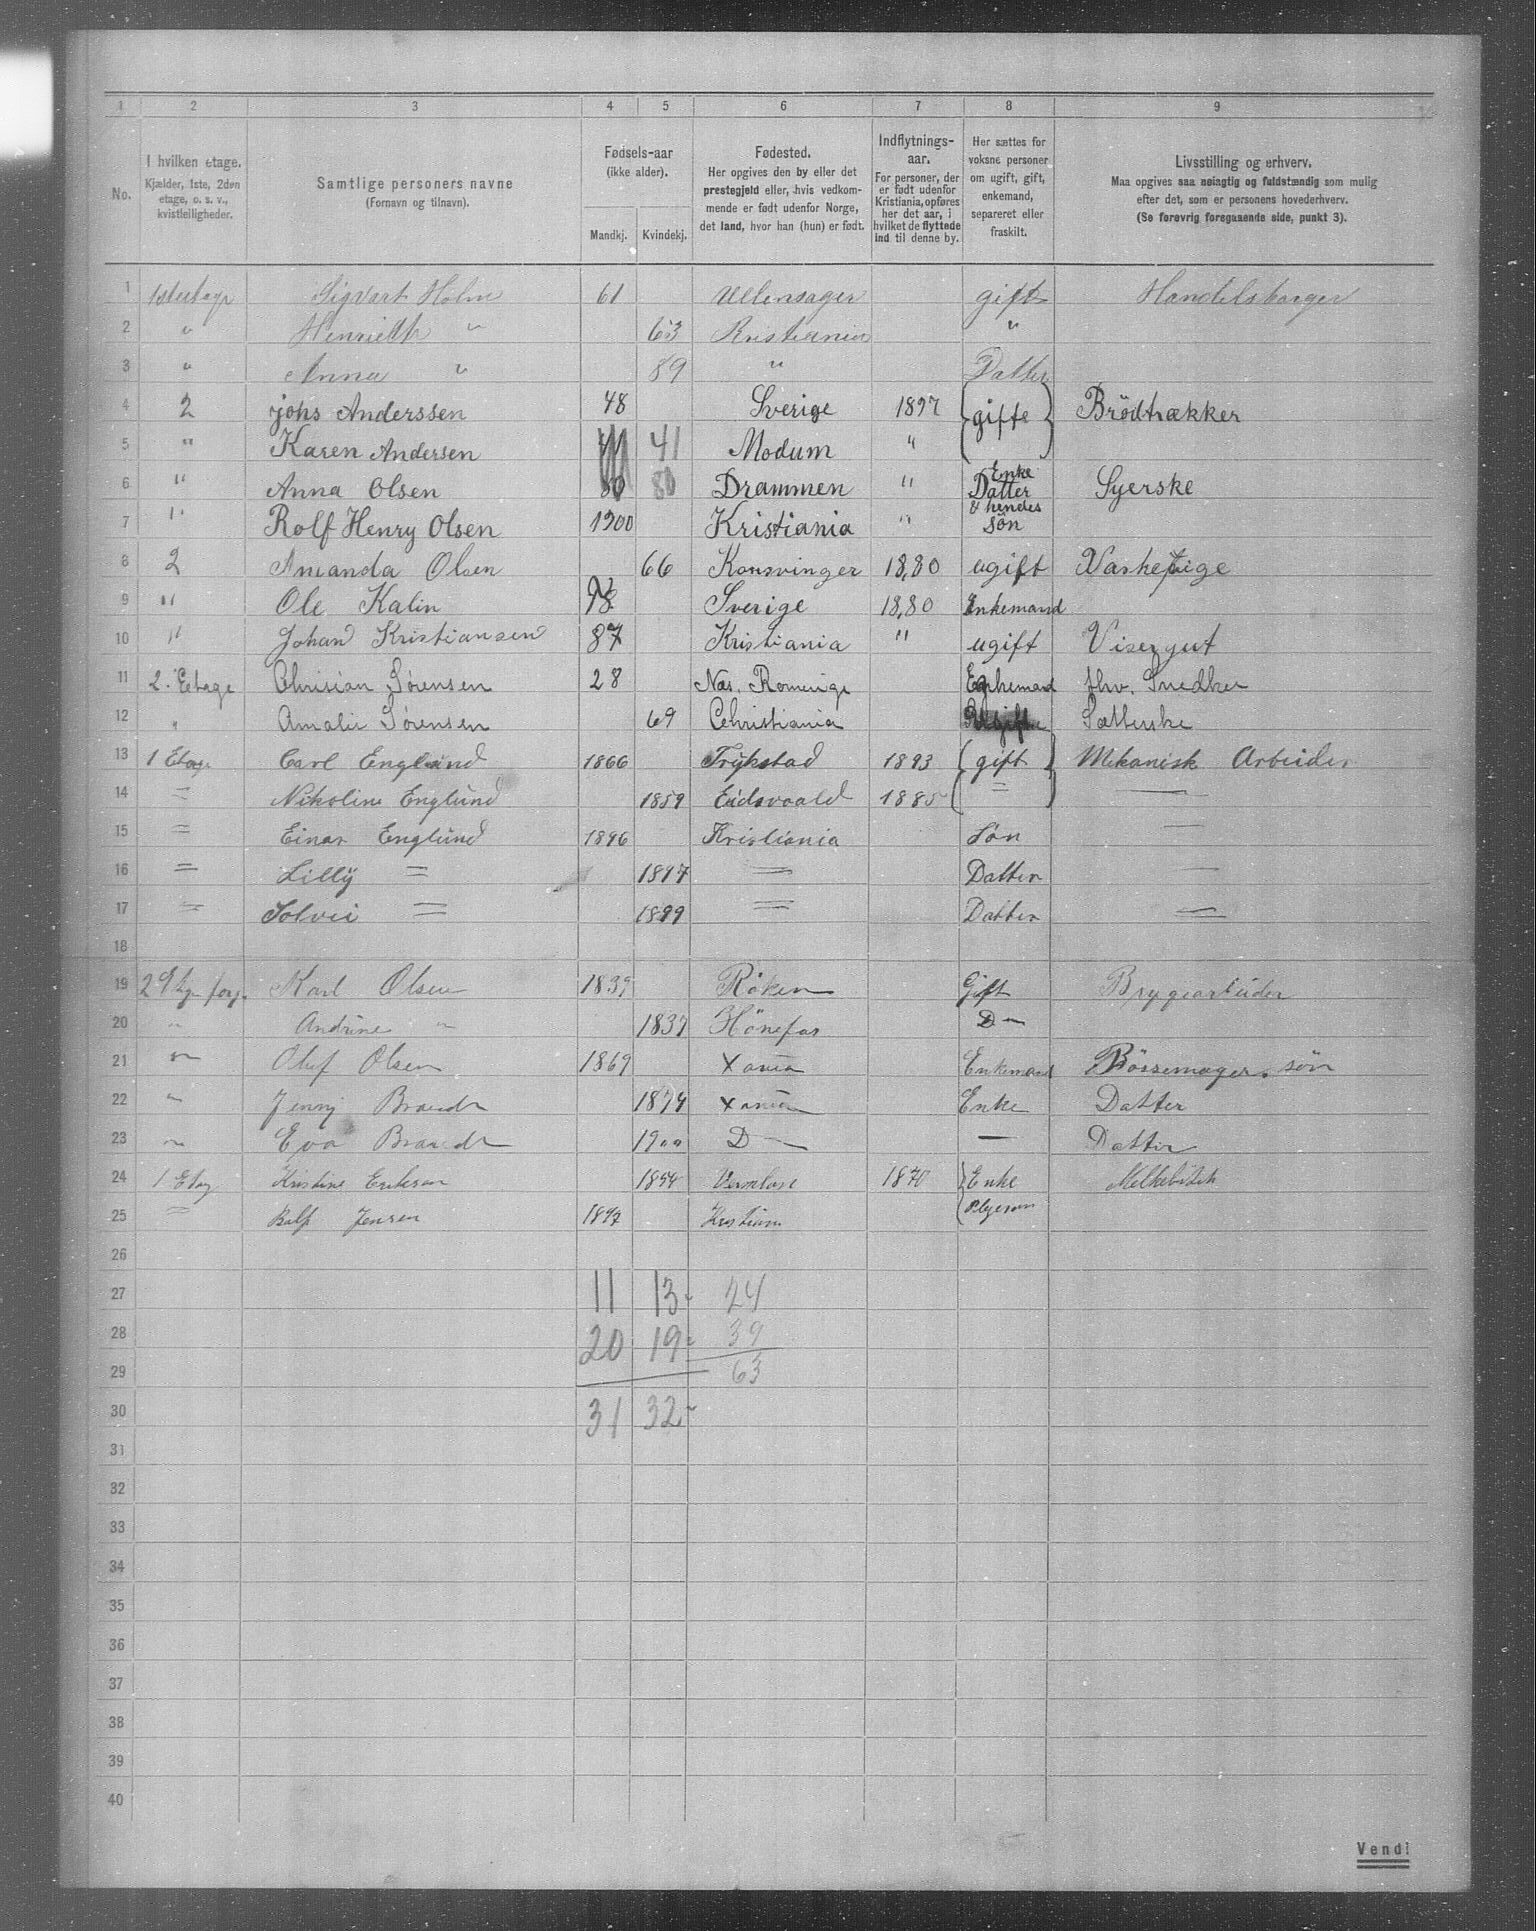 1 2 3 4 5 6 7 8 9
No.
I hvilken etage.
Kjælder, 1ste, 2den
etage, o. s. v.,
kvistleiligheder.
Samtlige personers navne
(Fornavn og tilnavn).
Fødsels-aar
(ikke alder).
Mandkj. Kvindekj.
Fødested.
Her opgives den by eller det
prestegjeld eller, hvis vedkom-
mende er født udenfor Norge,
det land, hvor han (hun) er født.
Indflytnings-
aar.
For personer, der
er født udenfor
Kristiania, opføres
her det aar, i
hvilket de flyttede
ind til denne by.
Her sættes for
voksne personer
om ugift, gift,
enkemand,
separeret eller
fraskilt.
Livsstilling og erhverv.
Maa opgives saa nøiagtig og fuldstændig som mulig
efter det, som er personens hovederhverv.
(Se forøvrig foregaaende side, punkt 3).
1 1ste etage Sigvart Holm 61 Ullensager gift Handelsborger
2 " Henriette " 63 Kristiania "
3 " Anna " 89 " Datter
4 2 johs Anderssen 48 Sverige 1897 gifte Brödtrækker
5 " Karen Andersen 41 Modum "
6 " Anna Olsen 80 80 Drammen " Enke Datter Syerske
7 " Rolf Henry Olsen 1900 Kristiania " & hendes Sön
8 2 Amanda Olsen 66 Konsvinger 18,80 ugift Vaskepige
9 " Ole Kalin Sverige 18,80 Enkemand
10 " Johan Kristiansen 87 Kristiania " ugift Visergut
11 2. Etage Chrisian Sørensen 28 Næs. Romerige Enkemand fhv. Snedker
12 " Amalie Sørensen 69 Cehristiania Sætterske
13 1 Etage Carl Englund 1866 Trykstad 1893 gift Mekanisk Arbeider
14 = Nikoline Englund 1859 Eidsvoald 1885 = —
15 = Einar Englund 1896 Kristiania Søn —
16 = Lilly = 1897 = Datter —
17 = Solvei = 1899 = Datter =
18
19 2 Karl Olsen 1839 Röken Gift Brygearbeider
20 " Andrine " 1837 Hönefos D —
21 " Oluf Olsen 1869 Xania Enkemand Bössemager. sön
22 " Jenny Brandt 1874 Xania Enke Datter
23 " Eva Brandt 1900 D — — Datter
24 1 Etag Kristine Eriksen 1854 1870 Enke Melkebutik
25 = Ralf Jensen 1897 Kristiania Pleјesøn
26
27 11 13 24
28 20 19 39
29 63
30 31 32
31
32
33
34
35
36
37
38
39
40
Vend!